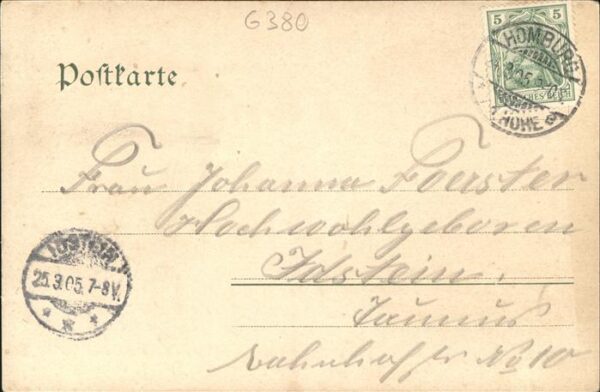 G380
5 5
HOMBURG
HÖHE
Poſtkarte
Frau Johanna Foerster
Hochwohlgeboren
Idstein,
Taunus
Bahnhofstr No 10
IDSTEIN
25.3.05.7-8V.